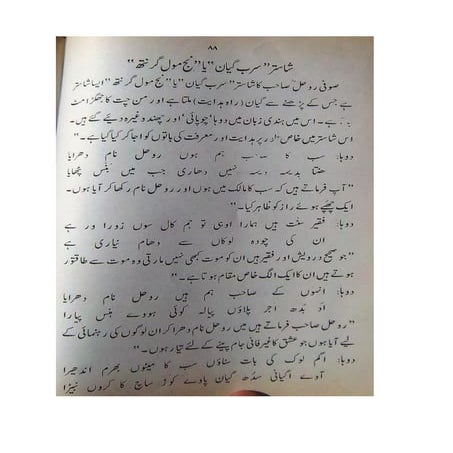 ۸۸
شاستر "سرب گیان" یا "نج مول گرنتھ"
صوفی روحلؒ صاحب کا شاستر "سرب گیان" یا "نج مول گرنتھ" ایسا شاستر
ہے جس کے پڑھنے سے گیان (راہ ہدایت) ملتا ہے اور من چت کا جھگڑا مٹ
ہے۔ اس میں ہندی زبان میں دوہا، چوپائی اور چھند وغیرہ دیئے گئے ہیں۔
اس شاستر میں خاص طور پر ہدایت اور معرفت کی باتوں کو اجاگر کیا گیا ہے۔"
دوہا: سب کا صاحب ہم ہوں روحل نام دھرایا
ھتا بدیہ دیہ نہیں دھاری جب میں ہنس چھایا
"آپ فرماتے ہیں کہ سب کا مالک میں ہوں اور روحل نام رکھا کر آیا ہوں۔
ایک چھپے ہوئے راز کو ظاہر کیا۔"
دوہا: فقیر سنت ہیں ہمارا اوہی تو ہم کال سوں زورا ور ہے
ان کی چودہ لوکاں سے دھام نیاری ہے
"جو صحیح درویش اور فقیر ہیں ان کو موت کبھی نہیں مارتی وہ موت سے طاقتور
ہوتے ہیں ان کا ایک الگ خاص مقام ہوتا ہے۔"
دوہا: انسوں کے صاحب ہم ہیں روحل نام دھرایا
اَد بُدھ اجر پلاؤں پیالہ کوئی ہووے ہنس پیارا
"روحل صاحب فرماتے ہیں میں روحل نام دھرا کر ان لوگوں کی رہنمائی کے
لیے آیا ہوں جو عشق کا عرفانی جام پینے کے لئے تیار ہوں۔"
دوہا: اگم لوک کی بات سناؤں سب کا میٹوں بھرم اندھیرا
آوے اگیانی سدُھ گیان پاوے کوڑ ساچ کا کروں نبیڑا